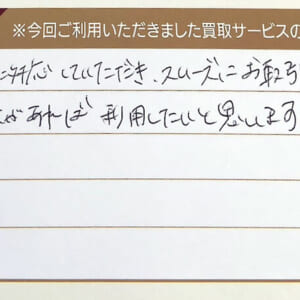 ※今回ご利用いただきました買取サービスの
に対応していただき、スムーズにお取引
があれば 利用したいと思います